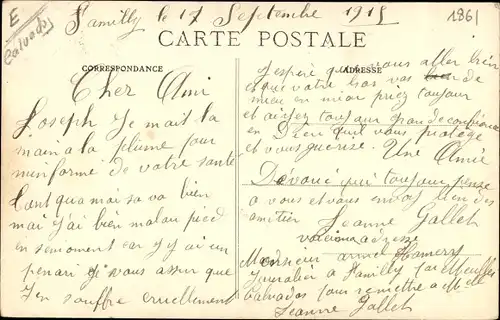 E
Calvados
1861
Familly le 17 Septembre 1915
CARTE POSTALE
CORRESPONDANCE
ADRESSE
Cher Ami
Joseph Je mait la
main a la plume pour
minformé de votre santé
Cant qua moi sa va bien
mai J'ai bien malau pied
en semoment car J'y ai un
penari Je vous assur que
J'en souffre cruellement
J'espere que vous aller bien
et que votre bras vas
mieu en mieu priez toujour
et aissez toujour gran de confience
en Dieu quil vous protege
et vous guerisse. Une Amie
Dévoué qui toujour pense
a vous et vous envoi bien des
amitier Jeanne Gallet
voici mon adresse
Monsieur Hamery
Journalier a Familly par Meulles
Calvados pour remettre a Mlle
Jeanne Gallet